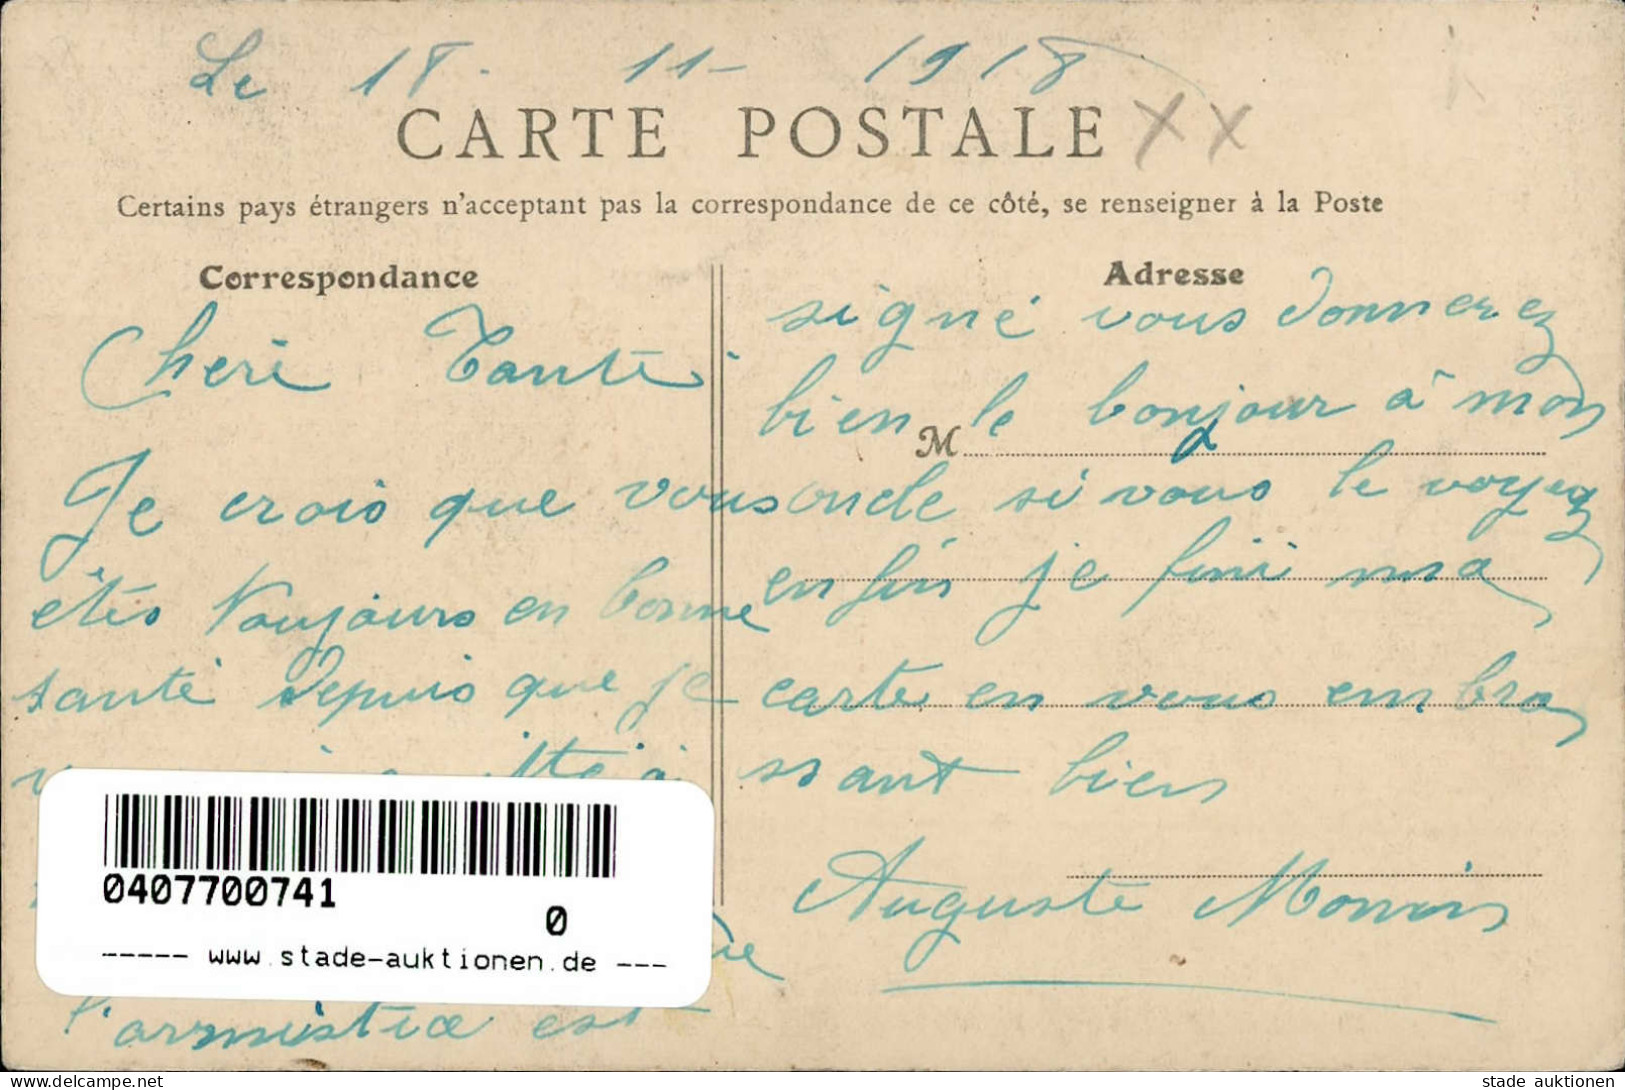 Le 18. 11- 1918
CARTE POSTALE XX
Certains pays étrangers n'acceptant pas la correspondance de ce côté, se renseigner à la Poste
Correspondance
Cheri Tante
Je crois que vous
êtes toujours en bonne
santé depuis que je
0407700741
0
----- www.stade-auktionen.de ---
l'armistice est
Adresse
signé vous donnerez
bien le bonjour à mon
M
oncle si vous le voyez
enfin je fini ma
carte en vous embra
ssant bien
Auguste
stade auktionen